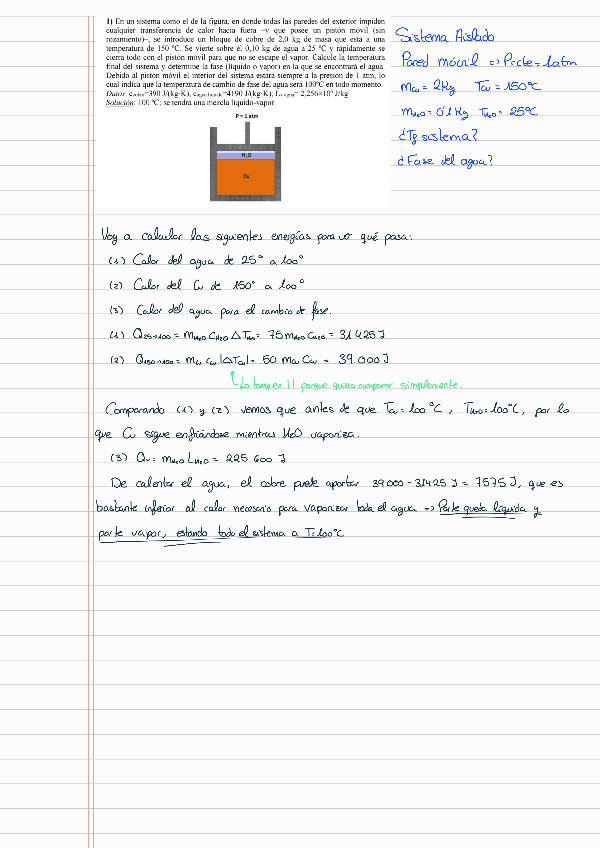 1) En un sistema como el de la figura, en donde todas las paredes del exterior impiden
cualquier transferencia de calor hacia fuera –y que posee un pistón móvil (sin
rozamiento)–, se introduce un bloque de cobre de 2,0 kg de masa que está a una
temperatura de 150 ºC. Se vierte sobre él 0,10 kg de agua a 25 ºC y rápidamente se
cierra todo con el pistón móvil para que no se escape el vapor. Calcule la temperatura
final del sistema y determine la fase (líquido o vapor) en la que se encontrará el agua.
Debido al pistón móvil el interior del sistema estará siempre a la presión de 1 atm, lo
cual indica que la temperatura de cambio de fase del agua será 100ºC en todo momento.
Datos: c_cobre=390 J/(kg·K); c_agua líquida=4190 J/(kg·K); L_v agua= 2,256×10⁶ J/kg
Solución: 100 ºC; se tendrá una mezcla líquido-vapor.
P = 1 atm
H₂O
Cu
Sistema Aislado
Pared móvil => P=cte=1atm
m_Cu = 2Kg T_Cu = 150ºC
m_H₂O = 0'1 Kg T_H₂O = 25ºC
¿Tf sistema?
¿Fase del agua?
Voy a calcular las siguientes energías para ver qué pasa:
(1) Calor del agua de 25° a 100°
(2) Calor del Cu de 150° a 100°
(3) Calor del agua para el cambio de fase.
(1) Q25→100 = m_H₂O C_H₂O ΔT_H₂O = 75 m_H₂O C_H₂O = 31425 J
(2) Q150→100 = m_Cu C_Cu |ΔT_Cu| = 50 m_Cu C_Cu = 39.000 J
Lo tomo en || porque quiero comparar simplemente.
Comparando (1) y (2) vemos que antes de que T_Cu = 100 ºC, T_H₂O = 100ºC, por lo
que Cu sigue enfriándose mientras H₂O vaporiza.
(3) Qv = m_H₂O L_H₂O = 225.600 J
De calentar el agua, el cobre puede aportar 39000 - 31425 J = 7575 J, que es
bastante inferior al calor necesario para vaporizar toda el agua => Parte queda líquida y
parte vapor, estando todo el sistema a T=100ºC